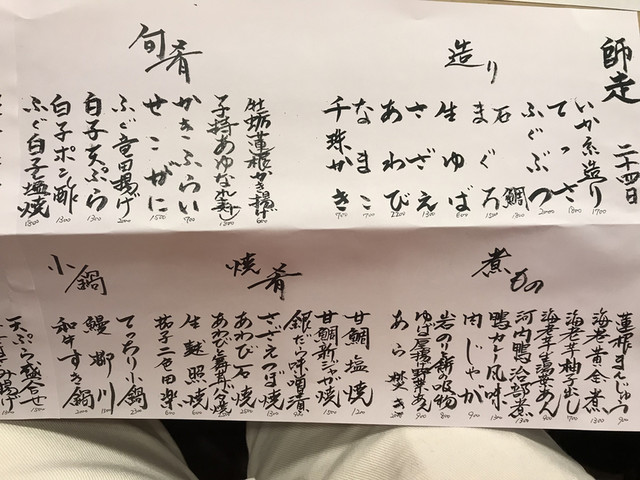 師走 二十四日
造り
いか糸造り 1700
てっさ 1800
ふぐぶつ 2000
石鯛 1300
まぐろ 1500
生ゆば 600
さざえ 1300
あわび 2200
なまこ 700
千珠かき 700
旬肴
牡蛎蓮根かき揚げ 600
子持あゆなれ寿し 1800
かきふらい 700
せこがに 1500
ふぐ竜田揚げ 2000
白子天ぷら 1300
白子ポン酢 1300
ふぐ白子塩焼 1800
煮もの
蓮根まんじゅう 900
海老芋 煮 1300
海老芋柚子出し 700
海老芋生湯葉あん
河内鴨治部煮 1300
鴨カツ風味
肉じゃが 900
岩のり餅吸物 900
ゆば居揚野菜あん 900
あら焚き
焼肴
甘鯛塩焼 1200
甘鯛新ジャガ焼 1500
銀だら味噌漬
さざえつぼ焼 1300
あわび石焼 2500
あわび舞茸バタ焼 2500
生麩照焼 600
茄子二色田楽 600
小鍋
てっちり小鍋 2300
鰻柳川 1300
和牛すき鍋 2000
天ぷら盛合せ 1500